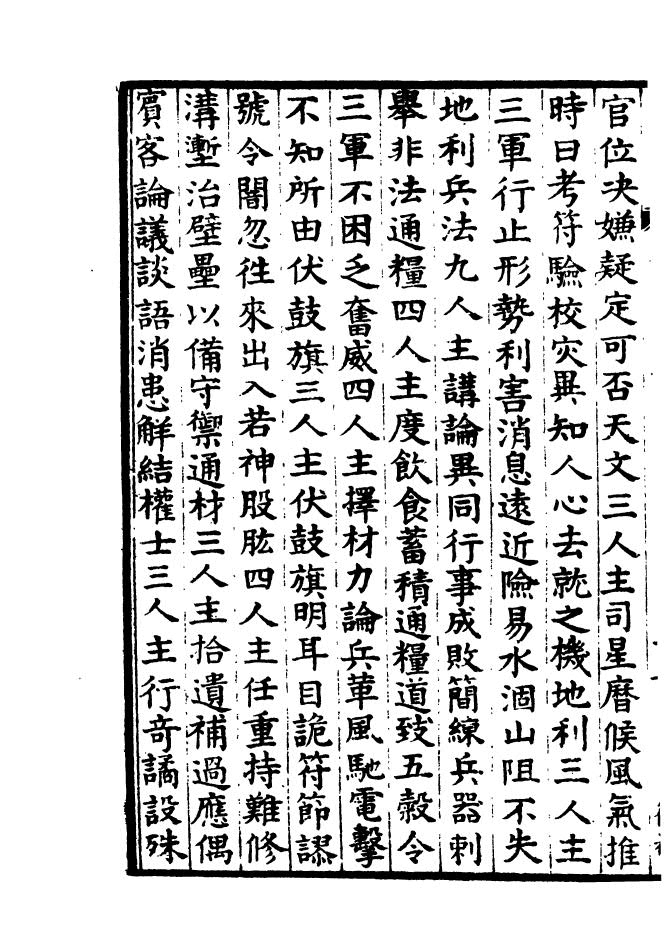 官位决嫌疑定可否天文三人主司星曆候風氣推
時日考符驗校灾異知人心去就之機地利三人主
三軍行止形勢利害消息遠近險易水涸山阻不失
地利兵法九人主講論異同行事成敗簡練兵器刺
舉非法通糧四人主度飲食蓄積通糧道致五穀令
三軍不困乏奮威四人主擇材力論兵革風馳電擊
不知所由伏鼓旗三人主伏鼓旗明耳目詭符節謬
號令闇忽往來出入若神股肱四人主任重持難修
溝壍治壁壘以備守禦通材三人主拾遺補過應偶
賓客論議談語消患解結權士三人主行奇譎設殊